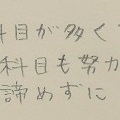 科目が多く
科目も努力
諦めずに